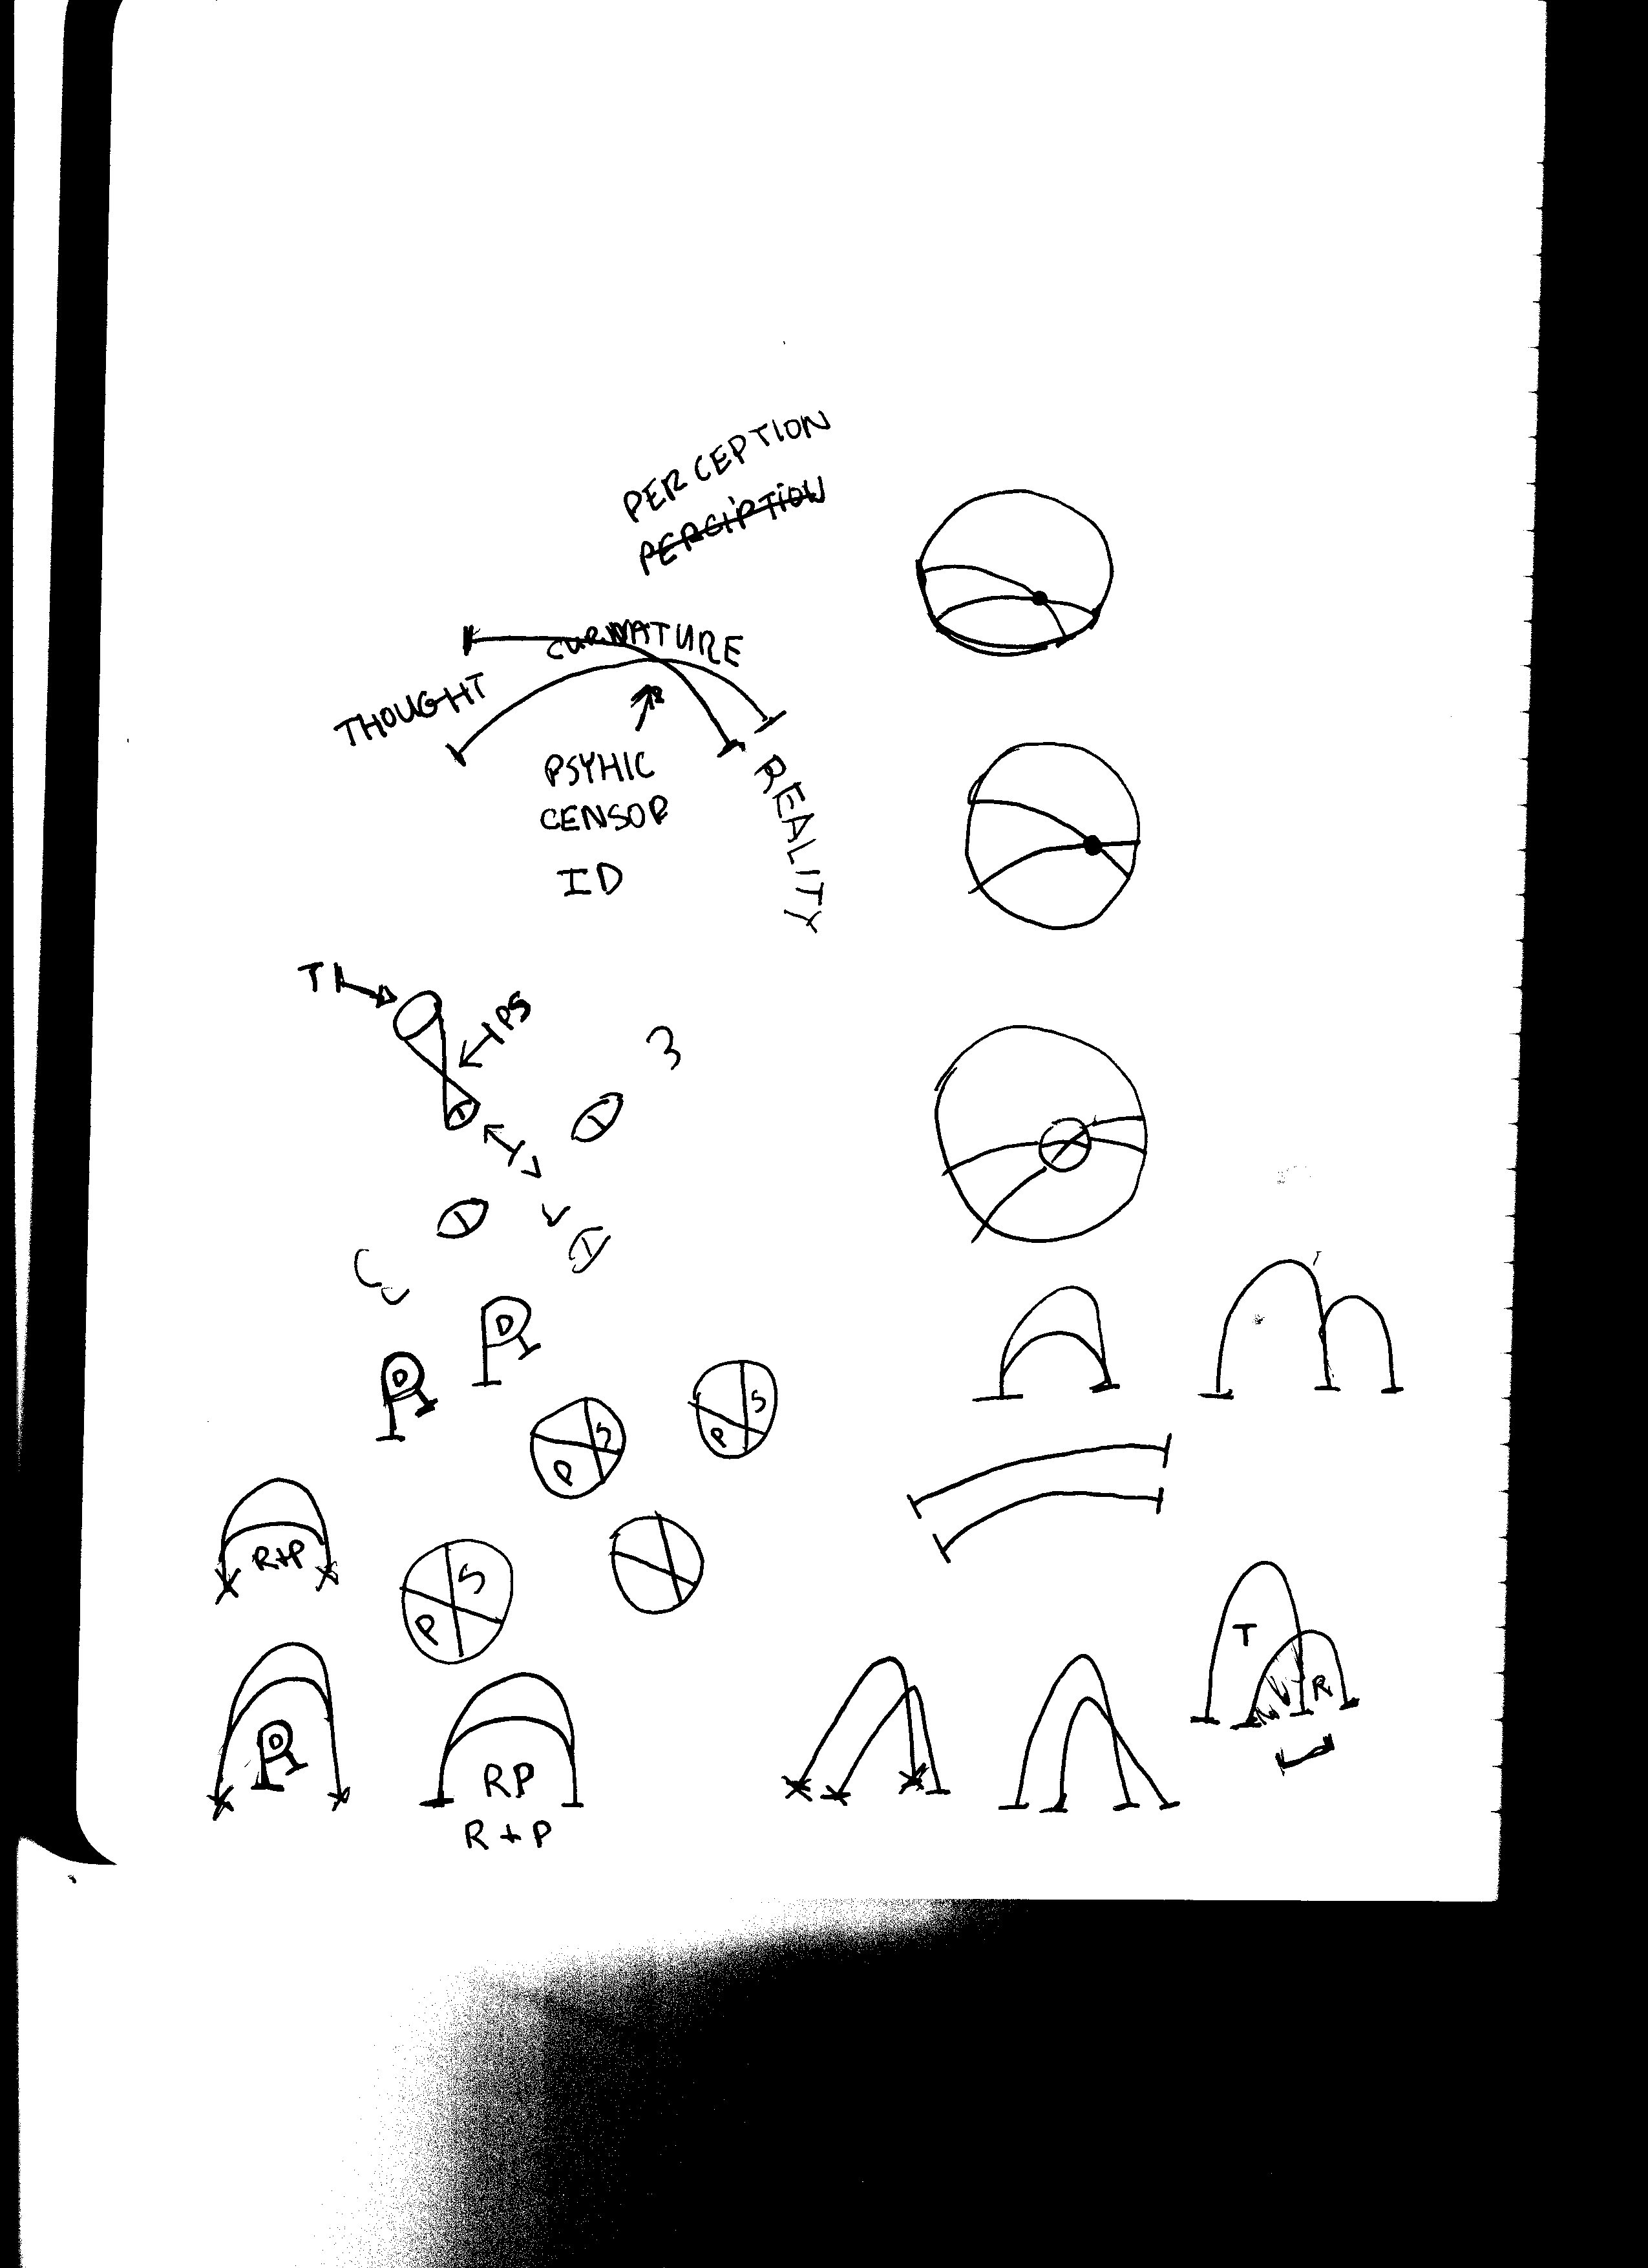 PERCEPTION
PERCIPTION
CURVATURE
THOUGHT
PSYHIC
CENSOR
ID
REALITY
T
PS
3
P
S
P
S
R+P
P
S
T
R
RP
R + P